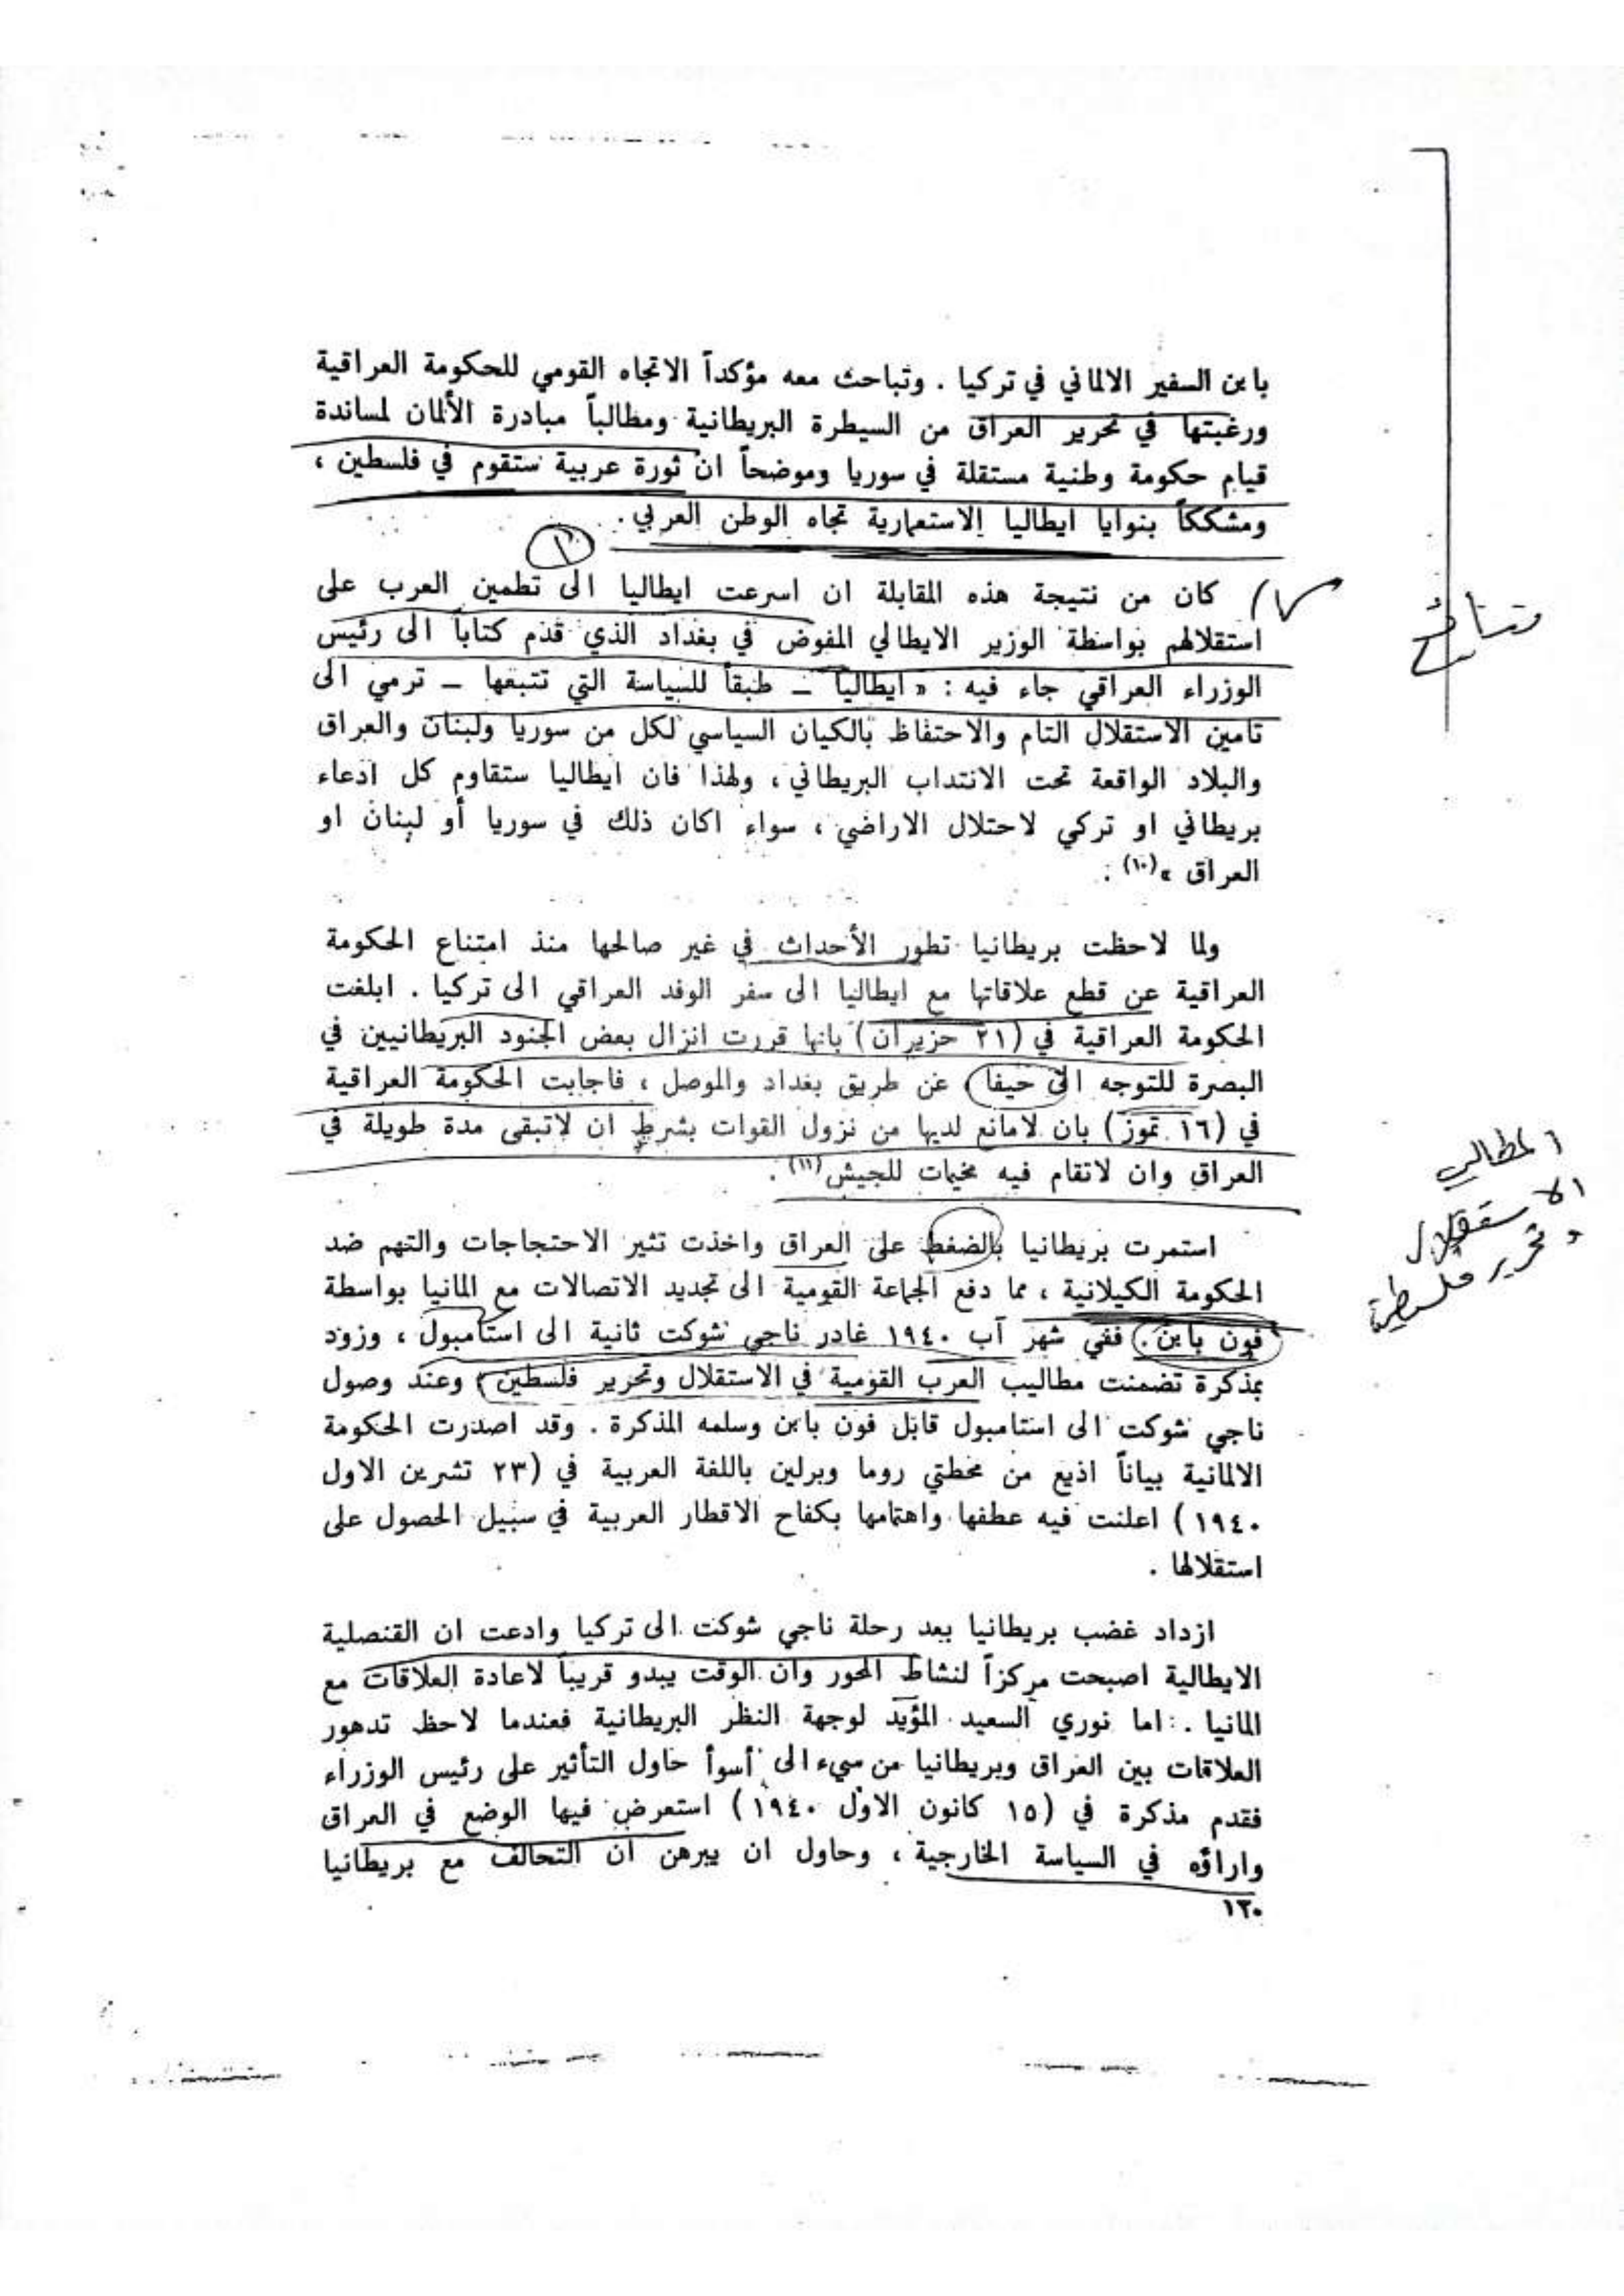 بابن السفير الالماني في تركيا . وتباحث معه مؤكداً الاتجاه القومي للحكومة العراقية
ورغبتها في تحرير العراق من السيطرة البريطانية ومطالباً مبادرة الألمان لمساندة
قيام حكومة وطنية مستقلة في سوريا وموضحاً ان ثورة عربية ستقوم في فلسطين ،
ومشككاً بنوايا ايطاليا الاستعمارية تجاه الوطن العربي .
١
كان من نتيجة هذه المقابلة ان اسرعت ايطاليا الى تطمين العرب على
ونتائج
استقلالهم بواسطة الوزير الايطالي المفوض في بغداد الذي قدم كتاباً الى رئيس
الوزراء العراقي جاء فيه : « ايطاليا – طبقاً للسياسة التي تتبعها – ترمي الى
تامين الاستقلال التام والاحتفاظ بالكيان السياسي لكل من سوريا ولبنان والعراق
والبلاد الواقعة تحت الانتداب البريطاني ، ولهذا فان ايطاليا ستقاوم كل ادعاء
بريطاني او تركي لاحتلال الاراضي ، سواء اكان ذلك في سوريا أو لبنان او
العراق »(١٠) .
ولما لاحظت بريطانيا تطور الأحداث في غير صالحها منذ امتناع الحكومة
العراقية عن قطع علاقاتها مع ايطاليا الى سفر الوفد العراقي الى تركيا . ابلغت
الحكومة العراقية في (٢١ حزيران) بانها قررت انزال بعض الجنود البريطانيين في
البصرة للتوجه الى حيفا عن طريق بغداد والموصل ، فاجابت الحكومة العراقية
في (١٦ تموز) بان لامانع لديها من نزول القوات بشرط ان لاتبقى مدة طويلة في
العراق وان لاتقام فيه مخيمات للجيش(١١) .
المطالب
الاستقلال
و تحرير فلسطين
استمرت بريطانيا بالضغط على العراق واخذت تثير الاحتجاجات والتهم ضد
الحكومة الكيلانية ، مما دفع الجماعة القومية الى تجديد الاتصالات مع المانيا بواسطة
فون بابن . ففي شهر آب ١٩٤٠ غادر ناجي شوكت ثانية الى استامبول ، وزود
بمذكرة تضمنت مطاليب العرب القومية في الاستقلال وتحرير فلسطين ) وعند وصول
ناجي شوكت الى استامبول قابل فون بابن وسلمه المذكرة . وقد اصدرت الحكومة
الالمانية بياناً اذيع من محطتي روما وبرلين باللغة العربية في (٢٣ تشرين الاول
١٩٤٠ ) اعلنت فيه عطفها واهتمامها بكفاح الاقطار العربية في سبيل الحصول على
استقلالها .
ازداد غضب بريطانيا بعد رحلة ناجي شوكت الى تركيا وادعت ان القنصلية
الايطالية اصبحت مركزاً لنشاط المحور وان الوقت يبدو قريباً لاعادة العلاقات مع
المانيا . اما نوري السعيد المؤيد لوجهة النظر البريطانية فعندما لاحظ تدهور
العلاقات بين العراق وبريطانيا من سيء الى أسوأ حاول التأثير على رئيس الوزراء
فقدم مذكرة في (١٥ كانون الاول ١٩٤٠ ) استعرض فيها الوضع في العراق
واراؤه في السياسة الخارجية ، وحاول ان يبرهن ان التحالف مع بريطانيا
١٢٠